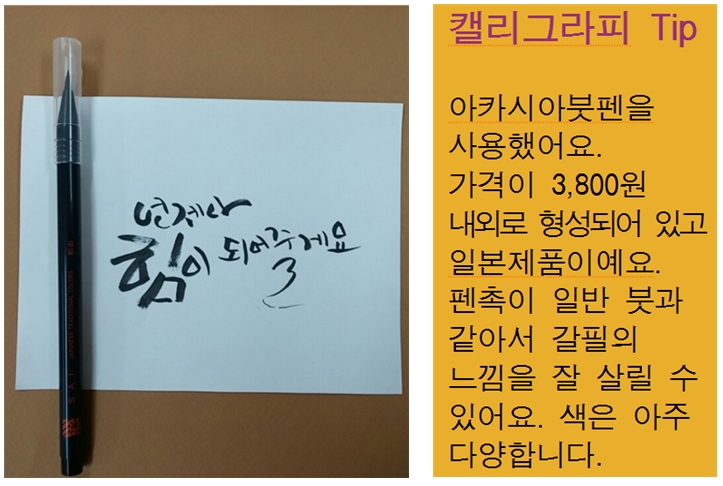 언제나
힘이 되어줄게요
SAI
JAPANESE TRADITIONAL COLORS
캘리그라피 Tip
아카시아붓펜을
사용했어요.
가격이 3,800원
내외로 형성되어 있고
일본제품이예요.
펜촉이 일반 붓과
같아서 갈필의
느낌을 잘 살릴 수
있어요. 색은 아주
다양합니다.